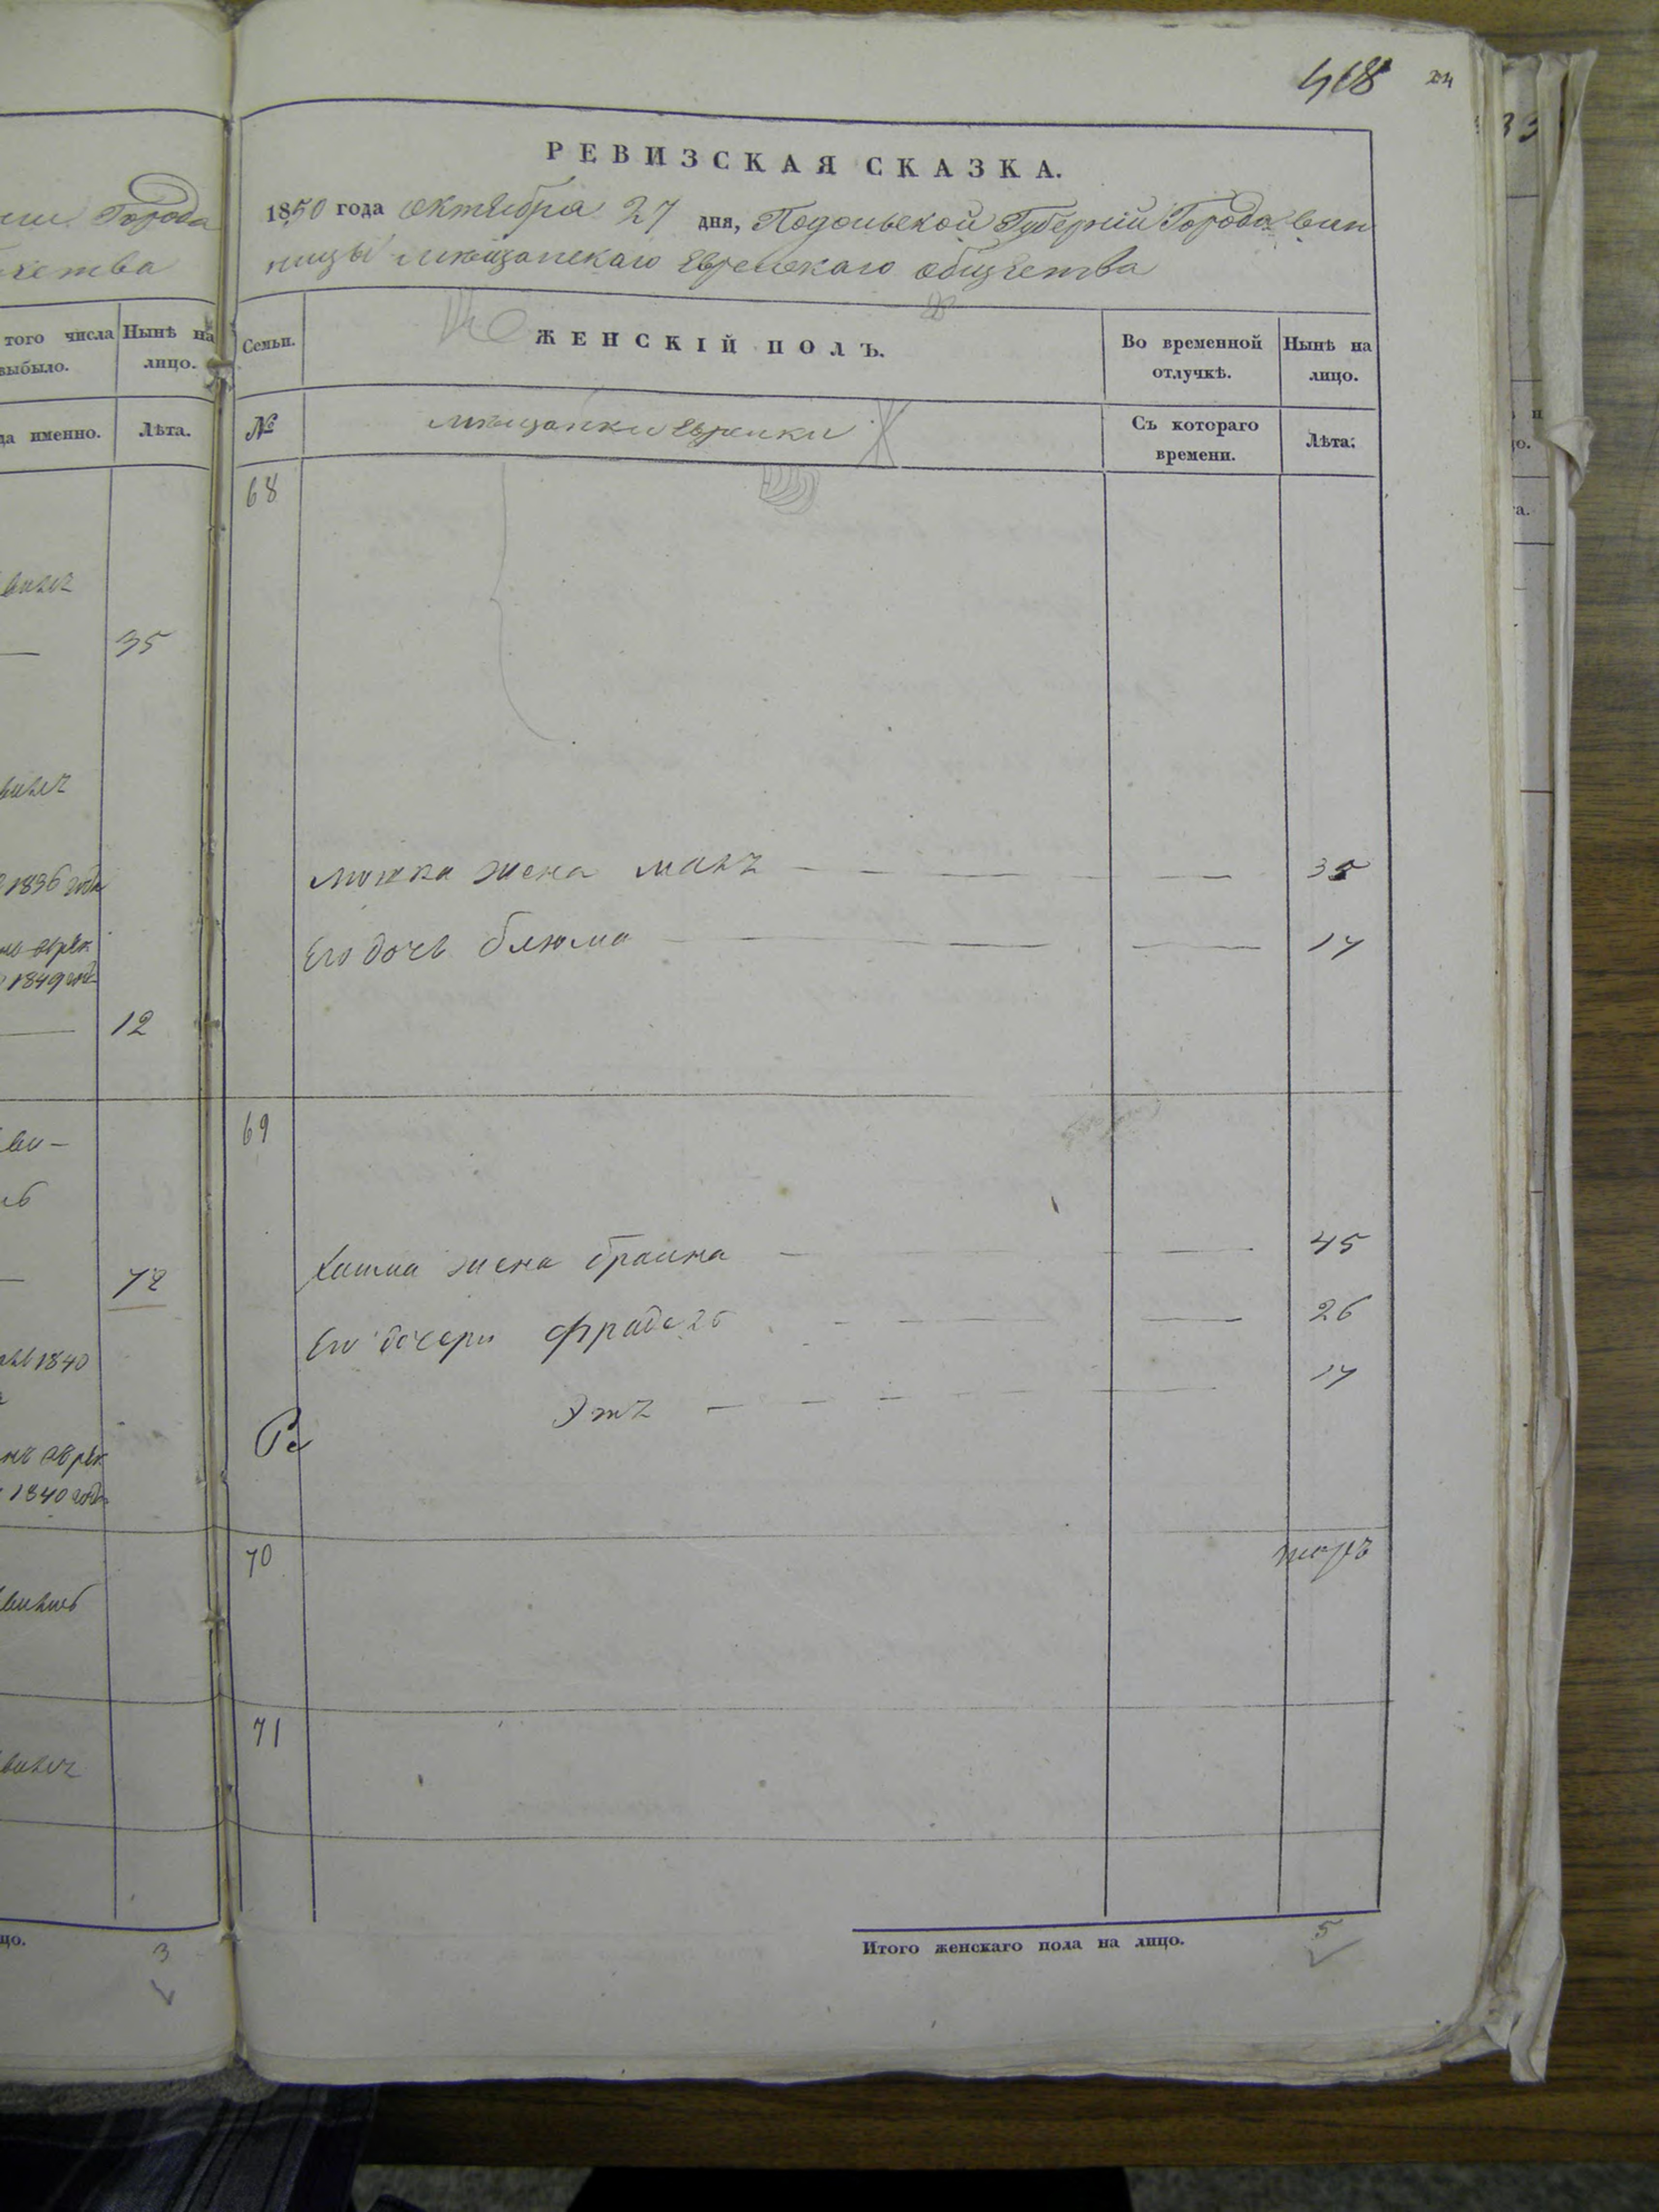 ши Города
418
24
33
чества
РЕВИЗСКАЯ СКАЗКА.
1850 года октября 27 дня, Подольской Губерніи Города Вин
ницы мѣщанскаго Еврейскаго общества
того числа
выбыло.
Нынѣ на
лицо.
Семьи.
ЖЕНСКІЙ ПОЛЪ.
Во временной
отлучкѣ.
Нынѣ на
лицо.
да именно.
Лѣта.
№
мѣщанки Еврейки
Съ котораго
времени.
Лѣта.
68
35
1836 года
Мошка жена Малъ 35
Его дочь Блюма 17
1849 года
12
69
72
Хаима жена Браина 45
Его дочери Фраделъ 26
Этъ 17
1840
1840 года
70
71
Итого женскаго пола на лицо. 5
цо.
3